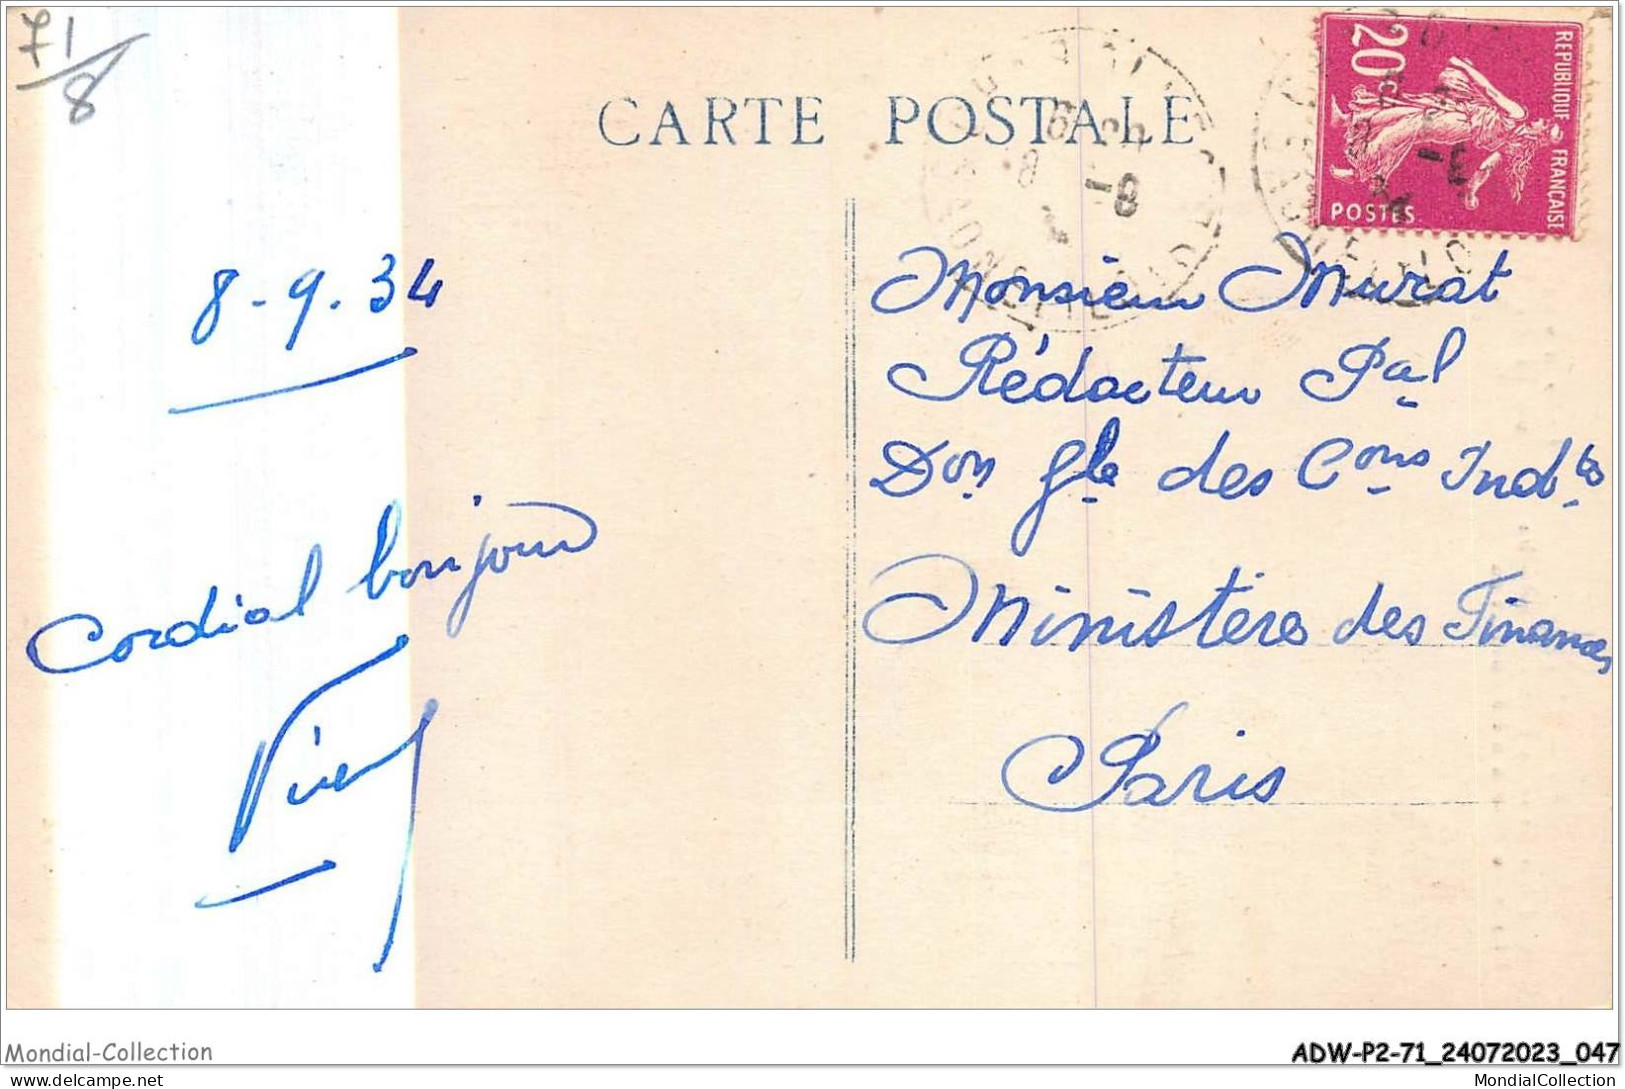 71
8
CARTE POSTALE
20c
REPUBLIQUE FRANÇAISE
POSTES
8-9.34
Cordial bonjour
Monsieur Murat
Rédacteur Pal
Don Gle des Cons Indtes
Ministère des Finances
Paris
Mondial-Collection
ADW-P2-71_24072023_047
delcampe.net
MondialCollection